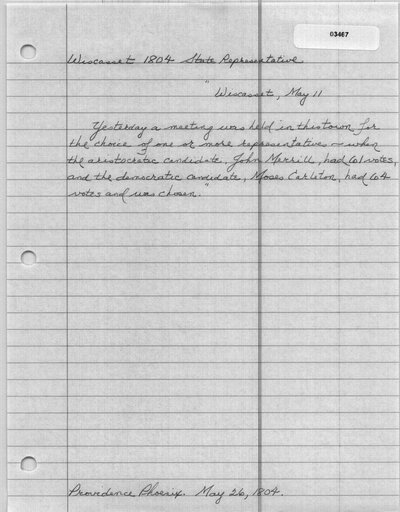 03467
Wiscasset 1804 State Representative
"Wiscasset, May 11
Yesterday a meeting was held in this town for
the choice of one or more representatives — when
the aristocratic candidate, John Merrill, had 61 votes,
and the democratic candidate, Moses Carleton, had 64
votes and was chosen."
Providence Phoenix. May 26, 1804.